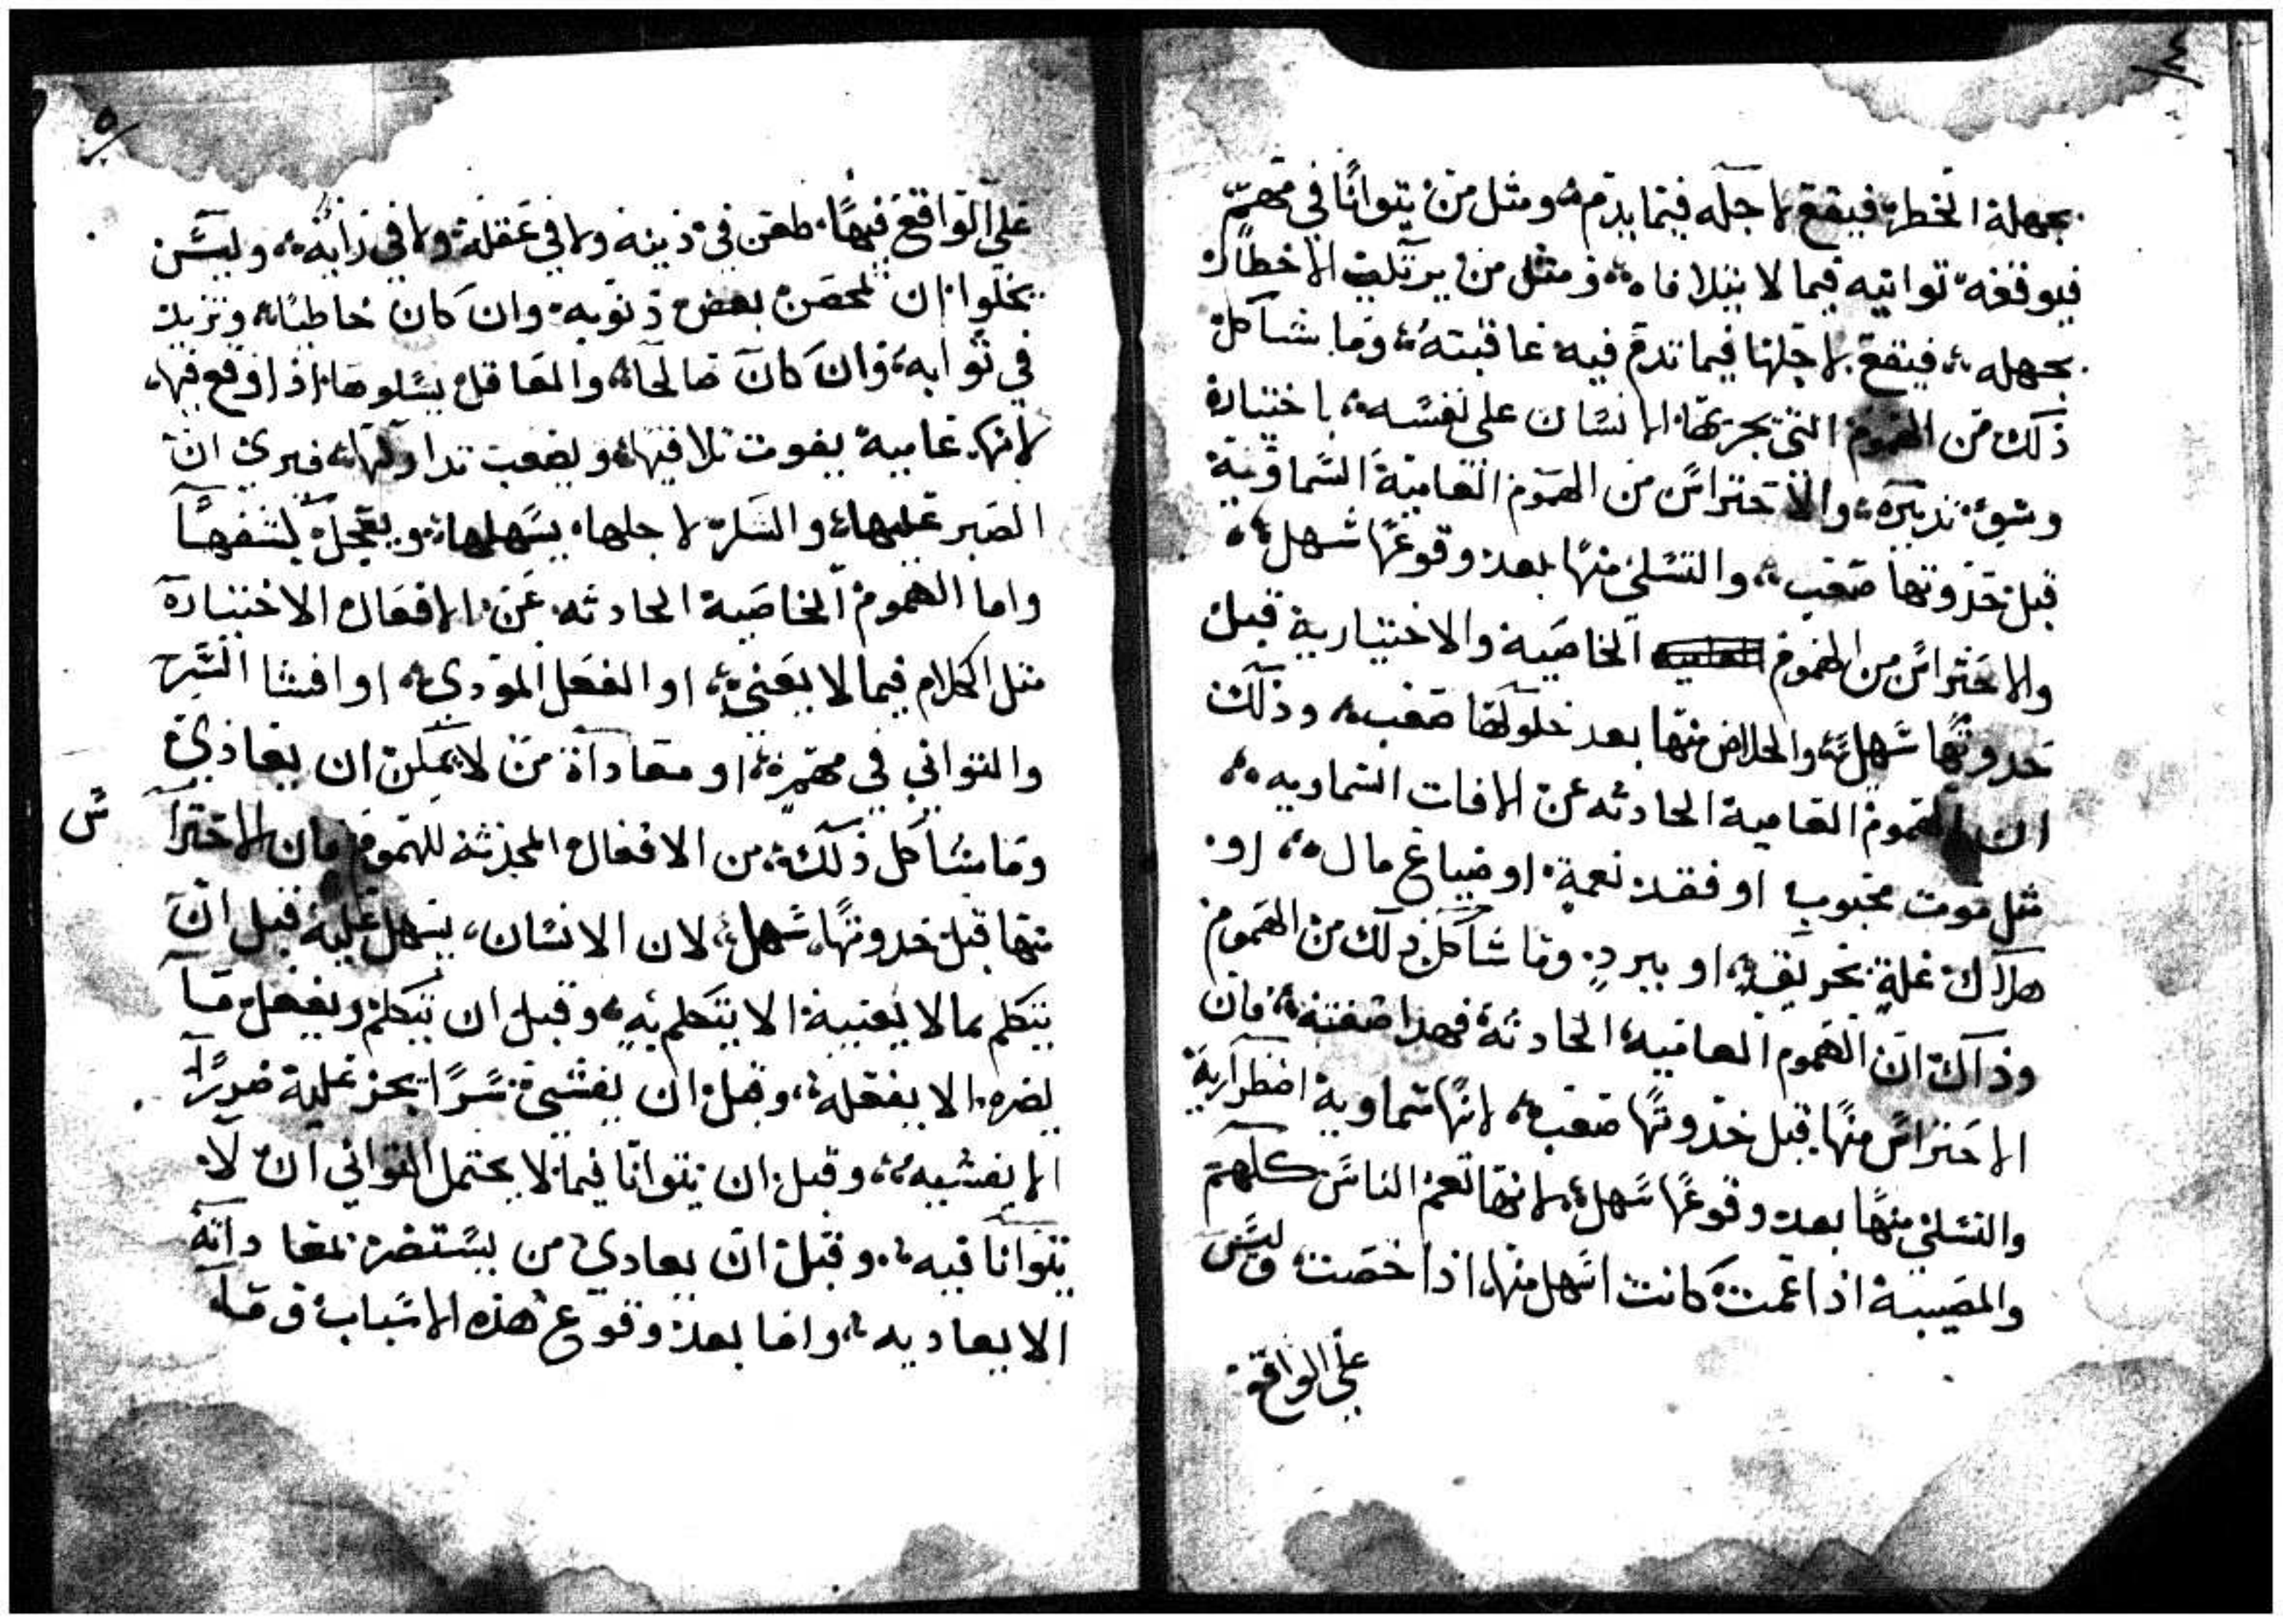 بجهلة الخطر فيقع لاجله فيما يذمه ومثل من يتوانا في مهم
فيوقفه توانيه فيما لا يتلافاه ومثل من يرتكب الاخطار
بجهله فيقع لاجلها فيما تدم فيه عاقبته وما شاكل
ذلك من الهموم التي يجرها الانسان على نفسه باختياره
وسوء تدبيره والاحتراس من الهموم العامية السماوية
قبل حدوثها صعب والتسلي منها بعد وقوعها سهل
والاحتراس من الهموم الخاصية والاختيارية قبل
حدوثها سهل والخلاص منها بعد حلولها صعب وذلك
ان الهموم العامية الحادثه عن الافات السماويه
مثل موت محبوب او فقد نعمة او ضياع مال او
هلاك غلة بحريق او ببرد وما شاكل ذلك من الهموم
وذاك ان الهموم العاميه الحادثة فهدا صفته فان
الاحتراس منها قبل حدوثها صعب لانها سماوية اضطرارية
والتسلي منها بعد وقوعها سهل لانها تعم الناس كلهم
والمصيبة اذا عمت كانت اسهل منها اذا خصت وليس
على الواقع
٥
على الواقع فيها طعن في دينه ولا في عقله ولا في رايه وليس
يخلوا ان تمحص بعض ذنوبه وان كان خاطيا وتزيد
في ثوابه وان كان صالحا والعاقل يسلوها اذا وقع فيها
لانها عامية يفوت تلافيها ويصعب تداولها فيرى ان
الصبر عليها والشكر لاجلها يسهلها ويعجل كشفها
واما الهموم الخاصية الحادثه عن الافعال الاختيارة
مثل الكلام فيما لا يعني او الفعل المودي او افشا السر
والتواني في مهم او معاداة من لا يمكن ان يعادي
وما شاكل ذلك من الافعال المحدثة للهموم فان الاحترا
س
منها قبل حدوثها سهل لان الانسان يسهل عليه قبل ان
يتكلم بما لا يعنيه الا يتكلم به وقبل ان يتكلم ويفعل ما
يضره الا يفعله وقبل ان يفشي سرا يجر عليه ضررا
الا يفشيه وقبل ان يتوانا فيما لا يحتمل التواني ان لا
يتوانا فيه وقبل ان يعادي من يستضر بمعاداته
الا يعاديه واما بعد وقوع هذه الاسباب ف ما